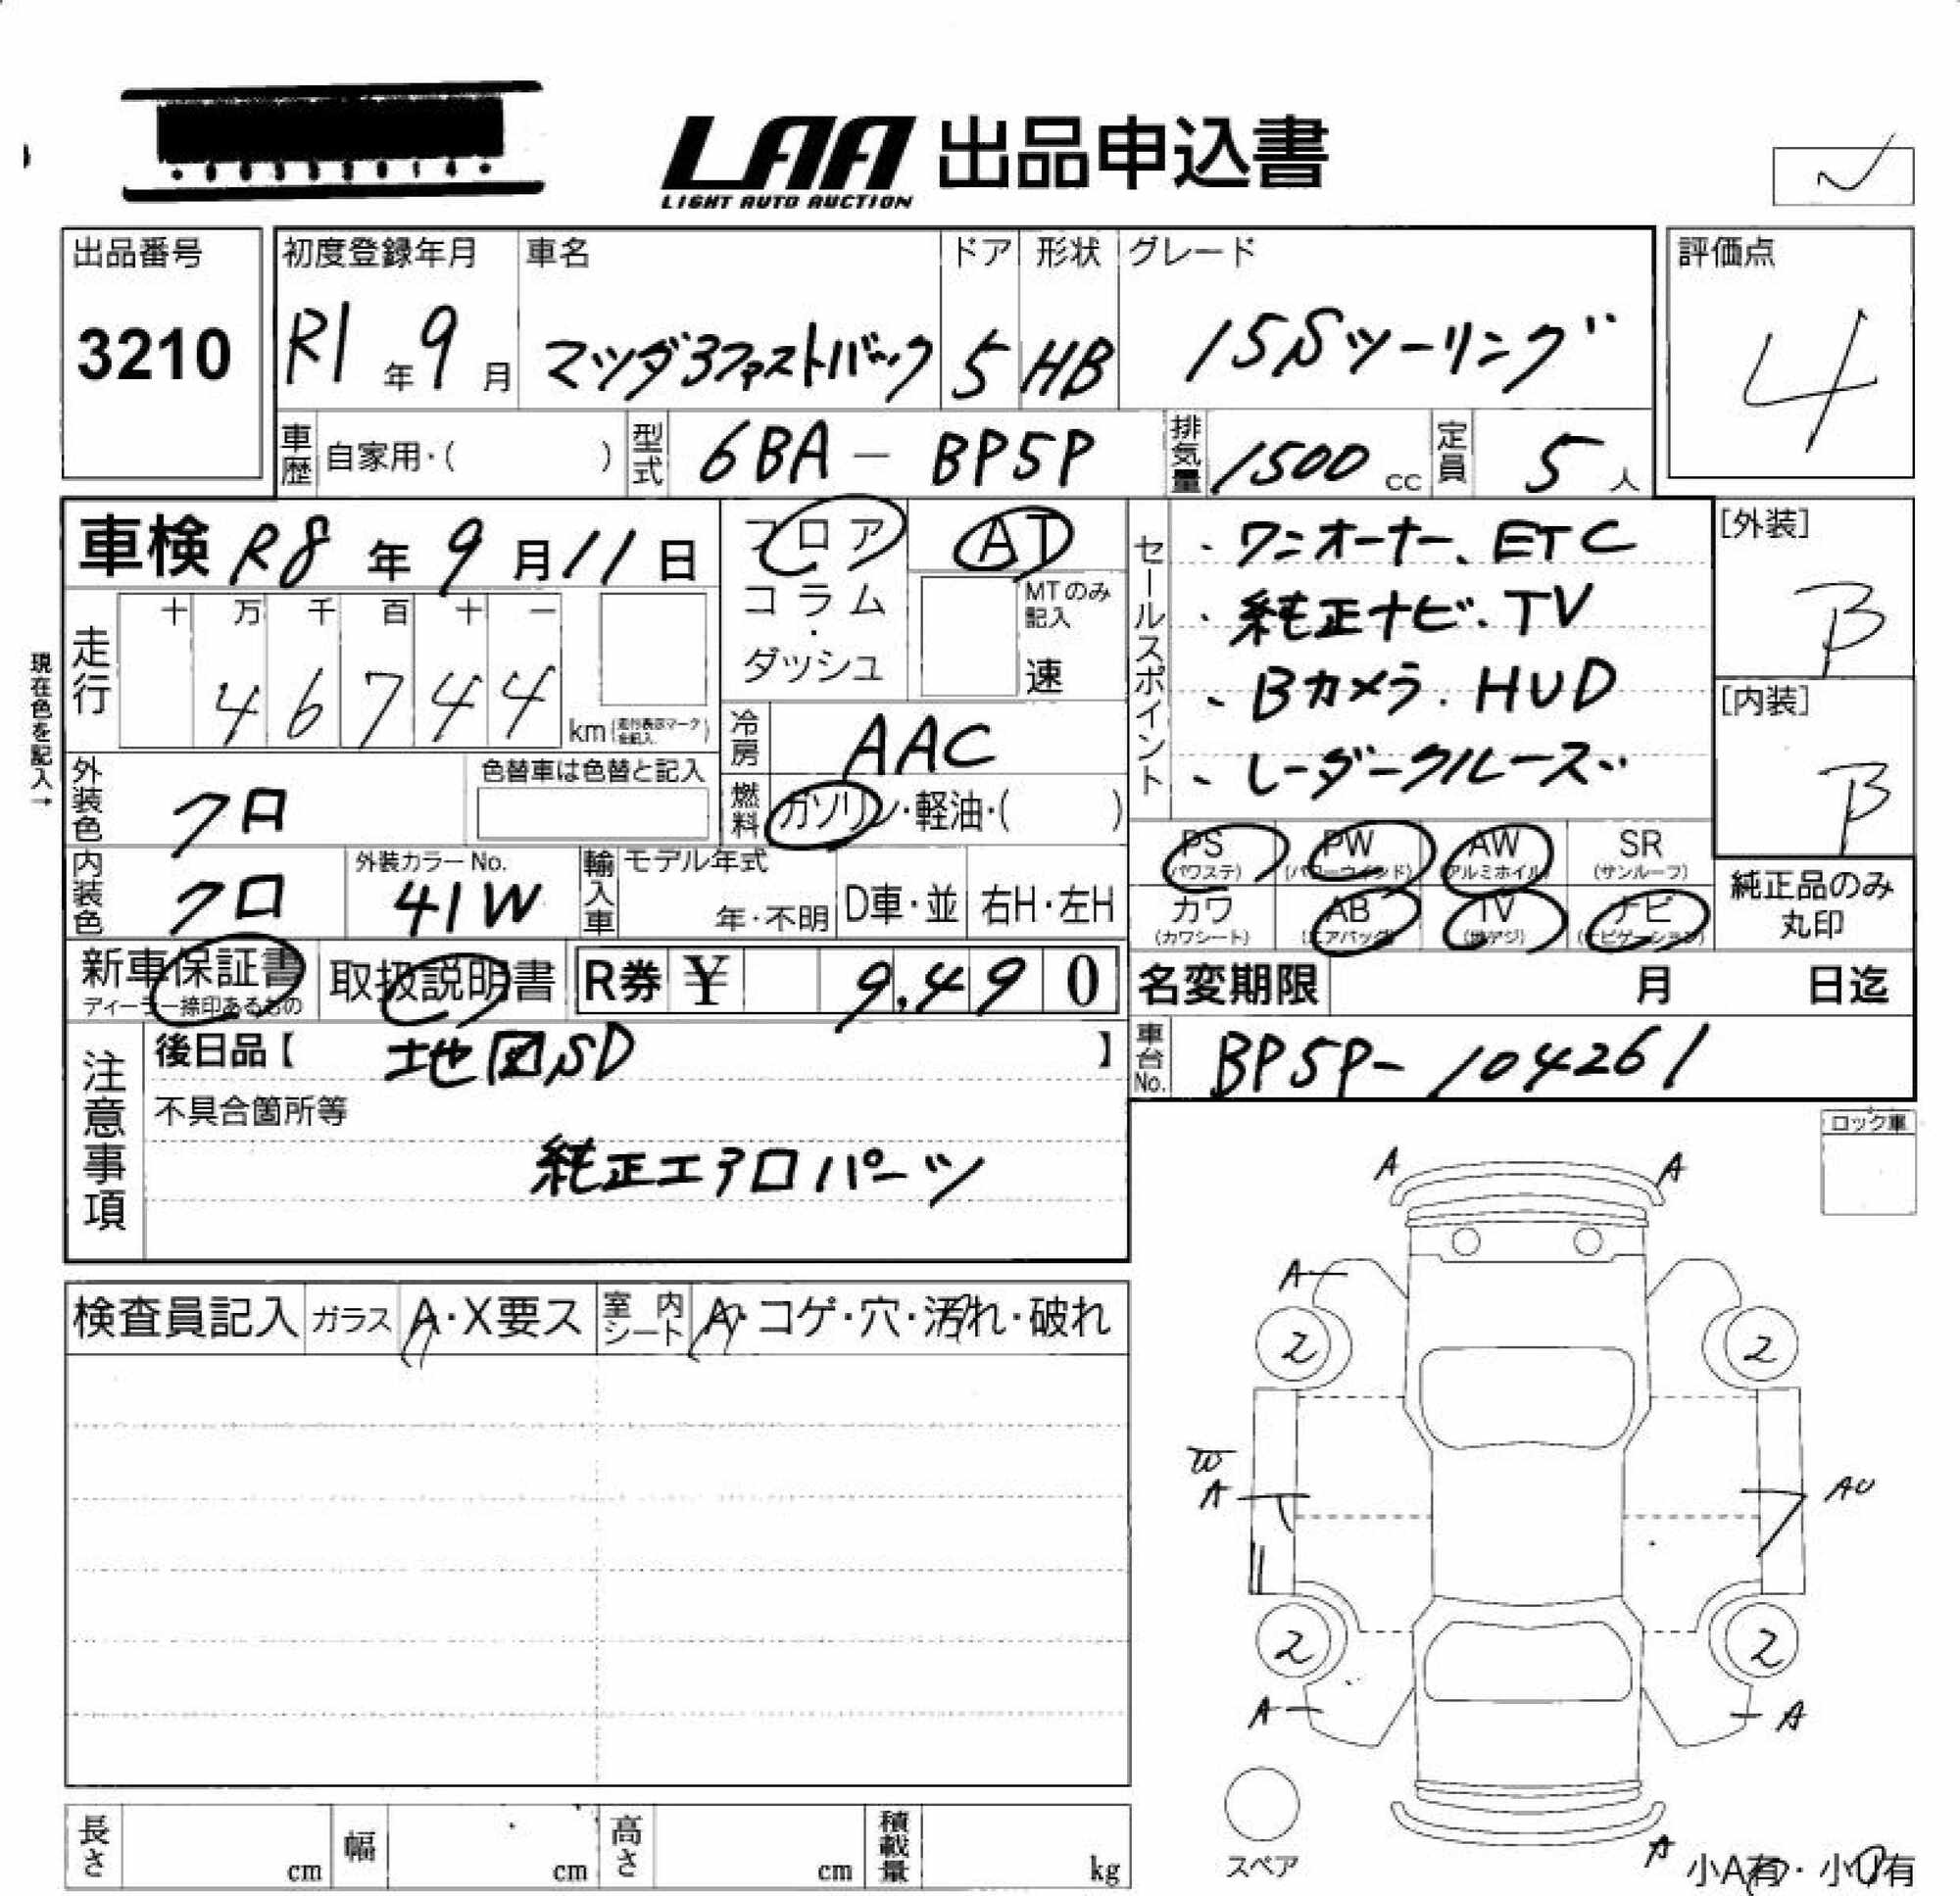 LAA 出品申込書
LIGHT AUTO AUCTION
出品番号
3210
初度登録年月
R1年9月
車名
マツダ3ファストバック
ドア
5
形状
HB
グレード
15Sツーリング
評価点
4
車歴 自家用・( )
型式 6BA - BP5P
排気量 1500 cc
定員 5 人
車検 R8年9月11日
フロア
コラム・
ダッシュ
AT
MTのみ記入
速
セールスポイント
・ワンオーナー、ETC
・純正ナビ・TV
・Bカメラ・HUD
・レーダークルーズ
[外装]
B
[内装]
B
現在色を記入→
走行
十 万 千 百 十 一
4 6 7 4 4
km (走行表示マークを記入)
冷房 AAC
燃料 ガソリン・軽油・( )
外装色 クロ
色替車は色替と記入
内装色 クロ
外装カラーNo.
41W
輸入車
モデル年式
年・不明
D車・並
右H・左H
PS (パワステ)
PW (パワーウインド)
AW (アルミホイル)
SR (サンルーフ)
カワ (カワシート)
AB (エアバッグ)
TV (地デジ)
ナビ (ナビゲーション)
純正品のみ
丸印
新車保証書
ディーラー捺印あるもの
取扱説明書
R券 ¥ 9,490
名変期限 月 日迄
車台No. BP5P-104261
注意事項
後日品【 地図SD 】
不具合箇所等
純正エアロパーツ
ロック車
検査員記入
ガラス A・X要ス
室内シート A・コゲ・穴・汚れ・破れ
A A
A
2 2
W
A AU
2 2
A A
スペア
A
小A有・小U有
長さ cm
幅 cm
高さ cm
積載量 kg